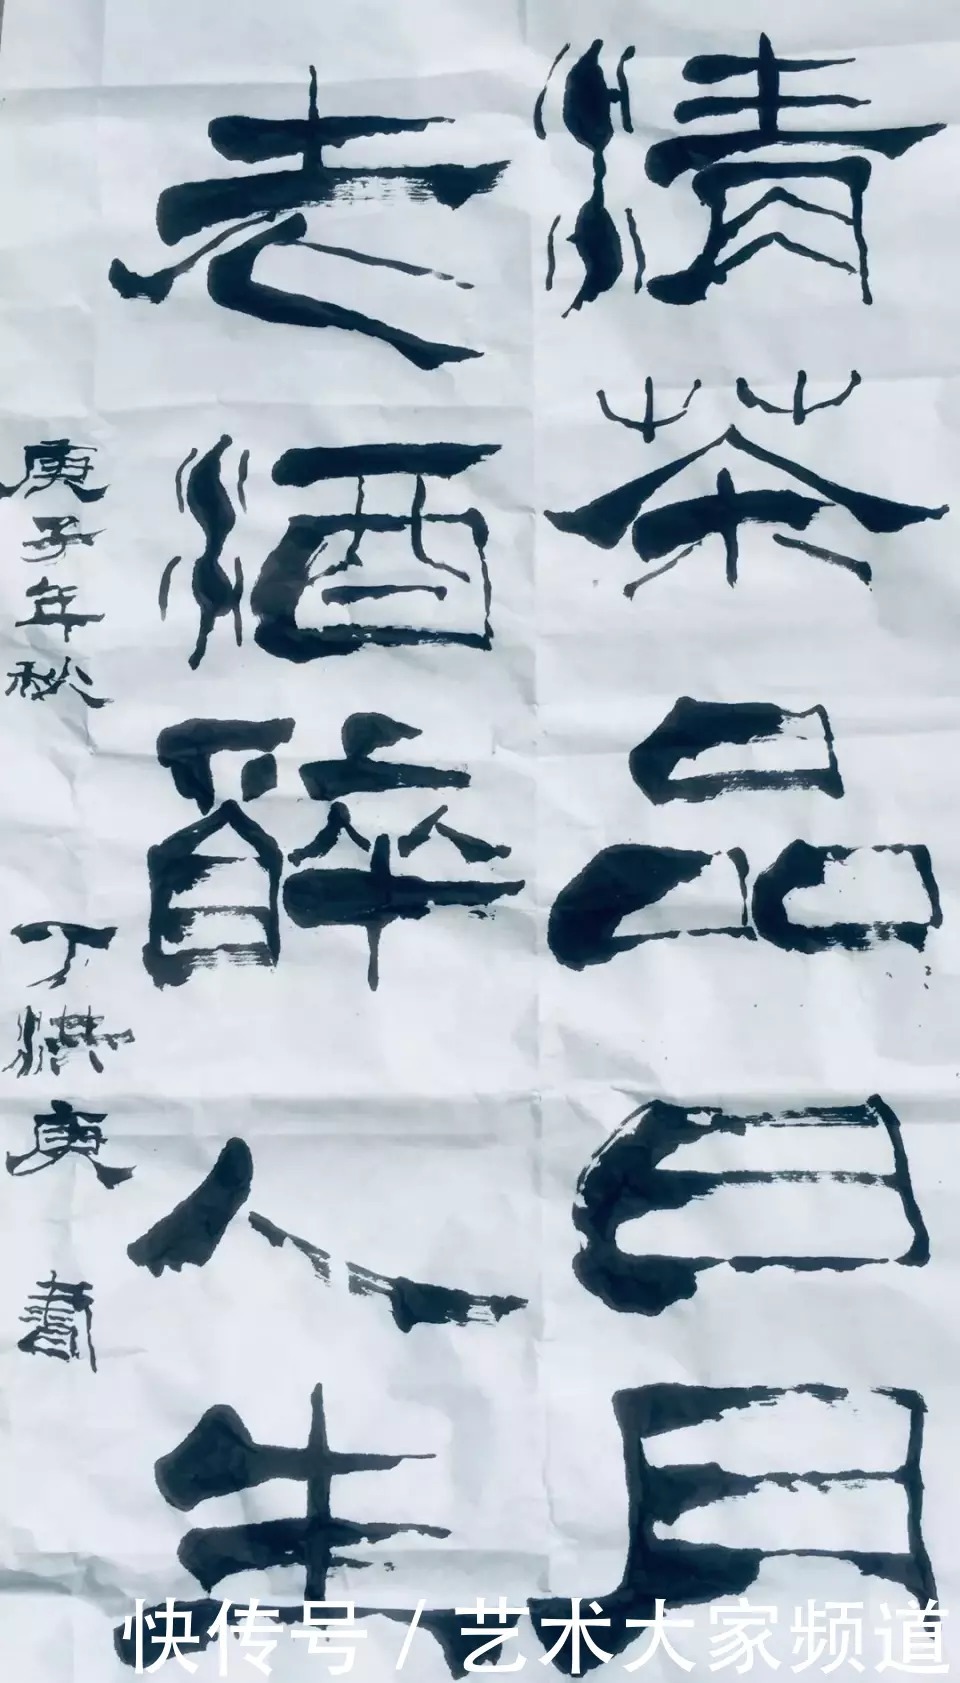 清茶品日月
老酒醉人生
庚子年秋
丁洪庚書
快传号/艺术大家频道